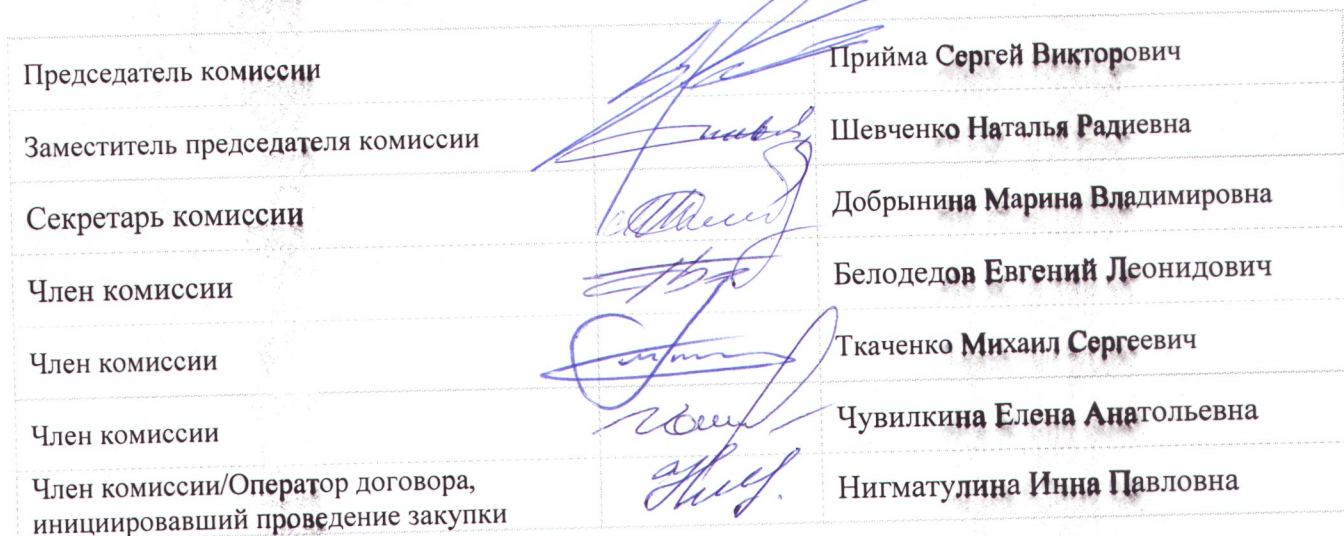 Председатель комиссии Прийма Сергей Викторович
Заместитель председателя комиссии Шевченко Наталья Радиевна
Секретарь комиссии Добрынина Марина Владимировна
Член комиссии Белодедов Евгений Леонидович
Член комиссии Ткаченко Михаил Сергеевич
Член комиссии Чувилкина Елена Анатольевна
Член комиссии/Оператор договора, Нигматулина Инна Павловна
инициировавший проведение закупки